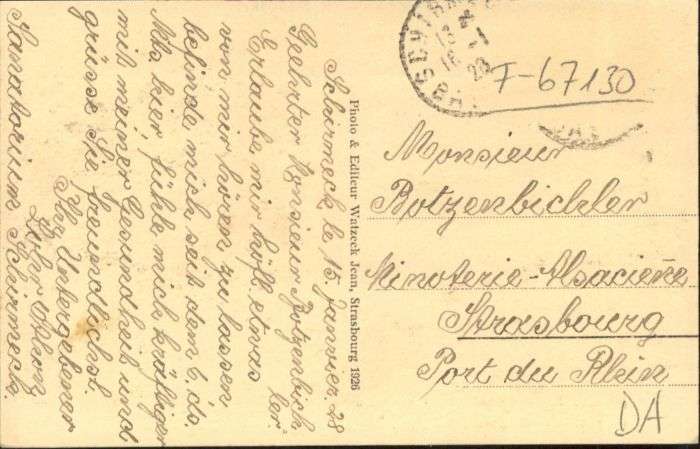 Schirmeck le 15. Janvier 28
Geehrter Monsieur Botzenbich
ler
Erlaube mir höfl. etwas
von mir hören zu lassen
befinde mich seit dem 6. ds.
Mts. hier, fühle mich kräftiger
mit meiner Gesundheit und
grüsse Sie freundlichst
Ihr Untergebener
Sanatorium Schirmeck.
Photo & Editeur Watzeck Jean, Strasbourg 1926
F-67130
Monsieur
Botzenbichler
Minoterie-Alsacienne
Strasbourg
Port du Rhin
DA